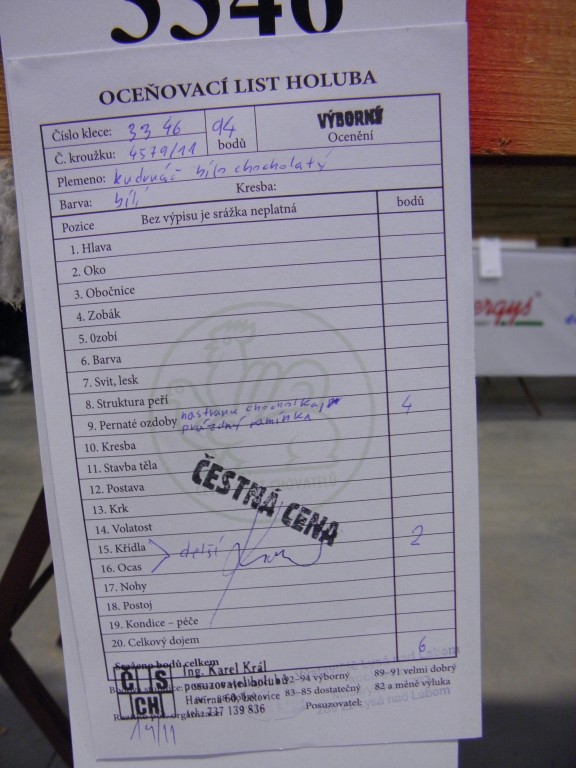 3346
OCEŇOVACÍ LIST HOLUBA
Číslo klece: 3346 94 bodů VÝBORNÝ
Č. kroužku: 4579/11 Ocenění
Plemeno: kudrnáč bílo chocholatý
Barva: bílí Kresba:
Pozice Bez výpisu je srážka neplatná bodů
1. Hlava
2. Oko
3. Obočnice
4. Zobák
5. Ozobí
6. Barva
7. Svit, lesk
8. Struktura peří
9. Pernaté ozdoby prázdný ramínka 4
10. Kresba
11. Stavba těla
12. Postava
ČESTNÁ CENA
13. Krk
14. Volatost
15. Křídla delší 2
16. Ocas
17. Nohy
18. Postoj
19. Kondice – péče
20. Celkový dojem
Sraženo bodů celkem 6
ČS CH
Ing. Karel Král
posuzovatel holubů 92–94 výborný 89–91 velmi dobrý
83–85 dostatečný 82 a méně výluka
tel: 737 139 836 Posuzovatel:
14/11
ergys